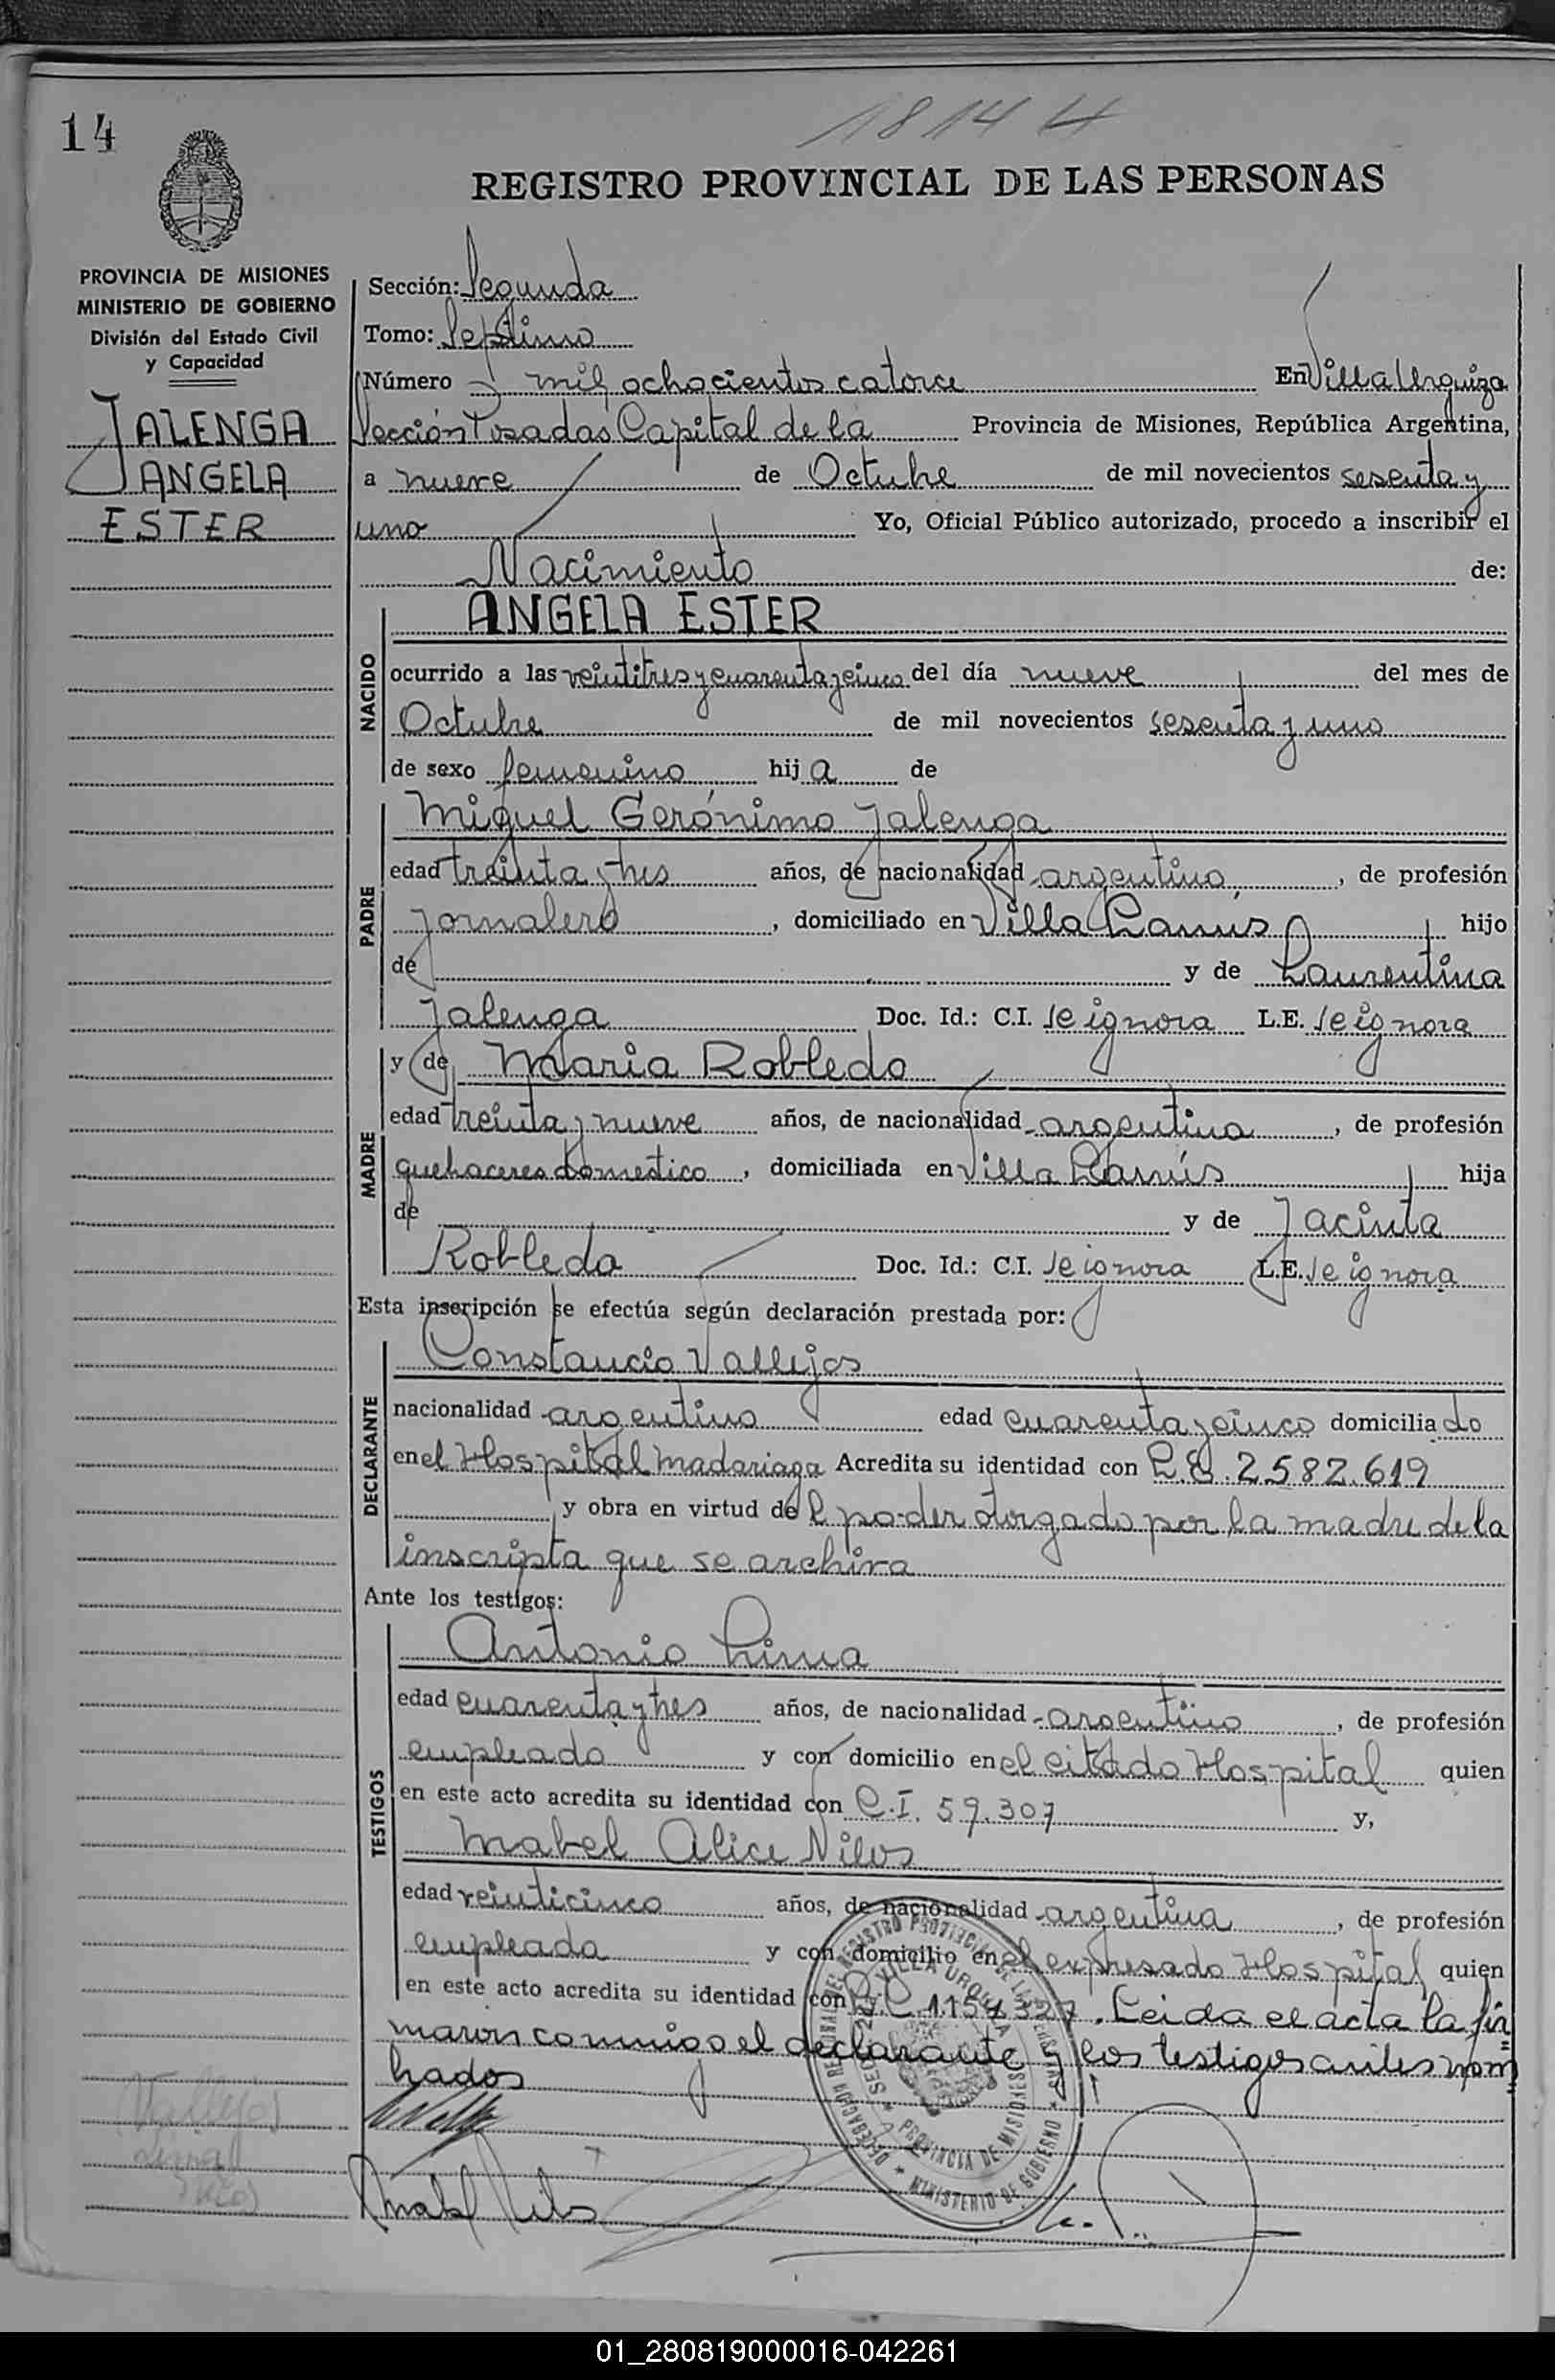 14
1814 4
REGISTRO PROVINCIAL DE LAS PERSONAS
PROVINCIA DE MISIONES
MINISTERIO DE GOBIERNO
División del Estado Civil
y Capacidad
JALENGA
ANGELA
ESTER
Sección: Segunda
Tomo: Septimo
Número mil ochocientos catorce En Villa Urquiza
Sección Posadas Capital de la Provincia de Misiones, República Argentina,
a nueve de Octubre de mil novecientos sesenta y
uno Yo, Oficial Público autorizado, procedo a inscribir el
Nacimiento de:
NACIDO
ANGELA ESTER
ocurrido a las veintitres y cuarenta y cinco del día nueve del mes de
Octubre de mil novecientos sesenta y uno
de sexo femenino hij a de
PADRE
Miguel Gerónimo Jalenga
edad treinta y tres años, de nacionalidad argentino, de profesión
Jornalero, domiciliado en Villa Lanús hijo
de y de Laurentina
Jalenga Doc. Id.: C.I. se ignora L.E. se ignora
MADRE
y de Maria Robledo
edad treinta y nueve años, de nacionalidad argentina, de profesión
quehaceres domestico, domiciliada en Villa Lanús hija
de y de Jacinta
Robledo Doc. Id.: C.I. se ignora L.E. se ignora
Esta inscripción se efectúa según declaración prestada por:
DECLARANTE
Constancio Vallejos
nacionalidad argentino edad cuarenta y cinco domicilia do
en el Hospital Madariaga Acredita su identidad con L.E. 2.582.619
y obra en virtud de l poder otorgado por la madre de la
inscripta que se archiva
Ante los testigos:
TESTIGOS
Antonio Lima
edad cuarenta y tres años, de nacionalidad argentino, de profesión
empleado y con domicilio en el citado Hospital quien
en este acto acredita su identidad con C.I. 59.307 y,
Mabel Alice Nilos
edad veinticinco años, de nacionalidad argentina, de profesión
empleada y con domicilio en el expresado Hospital quien
en este acto acredita su identidad con L.C. 1.157.327. Leida el acta la fir
maron conmigo el declarante y los testigos antes nom
brados
Vallejos
Lima
Mabel Nilos
DELEGACION REGIONAL DEL REGISTRO PROVINCIAL DE LAS PERSONAS
SECCION 2a VILLA URQUIZA
PROVINCIA DE MISIONES
MINISTERIO DE GOBIERNO
01_280819000016-042261